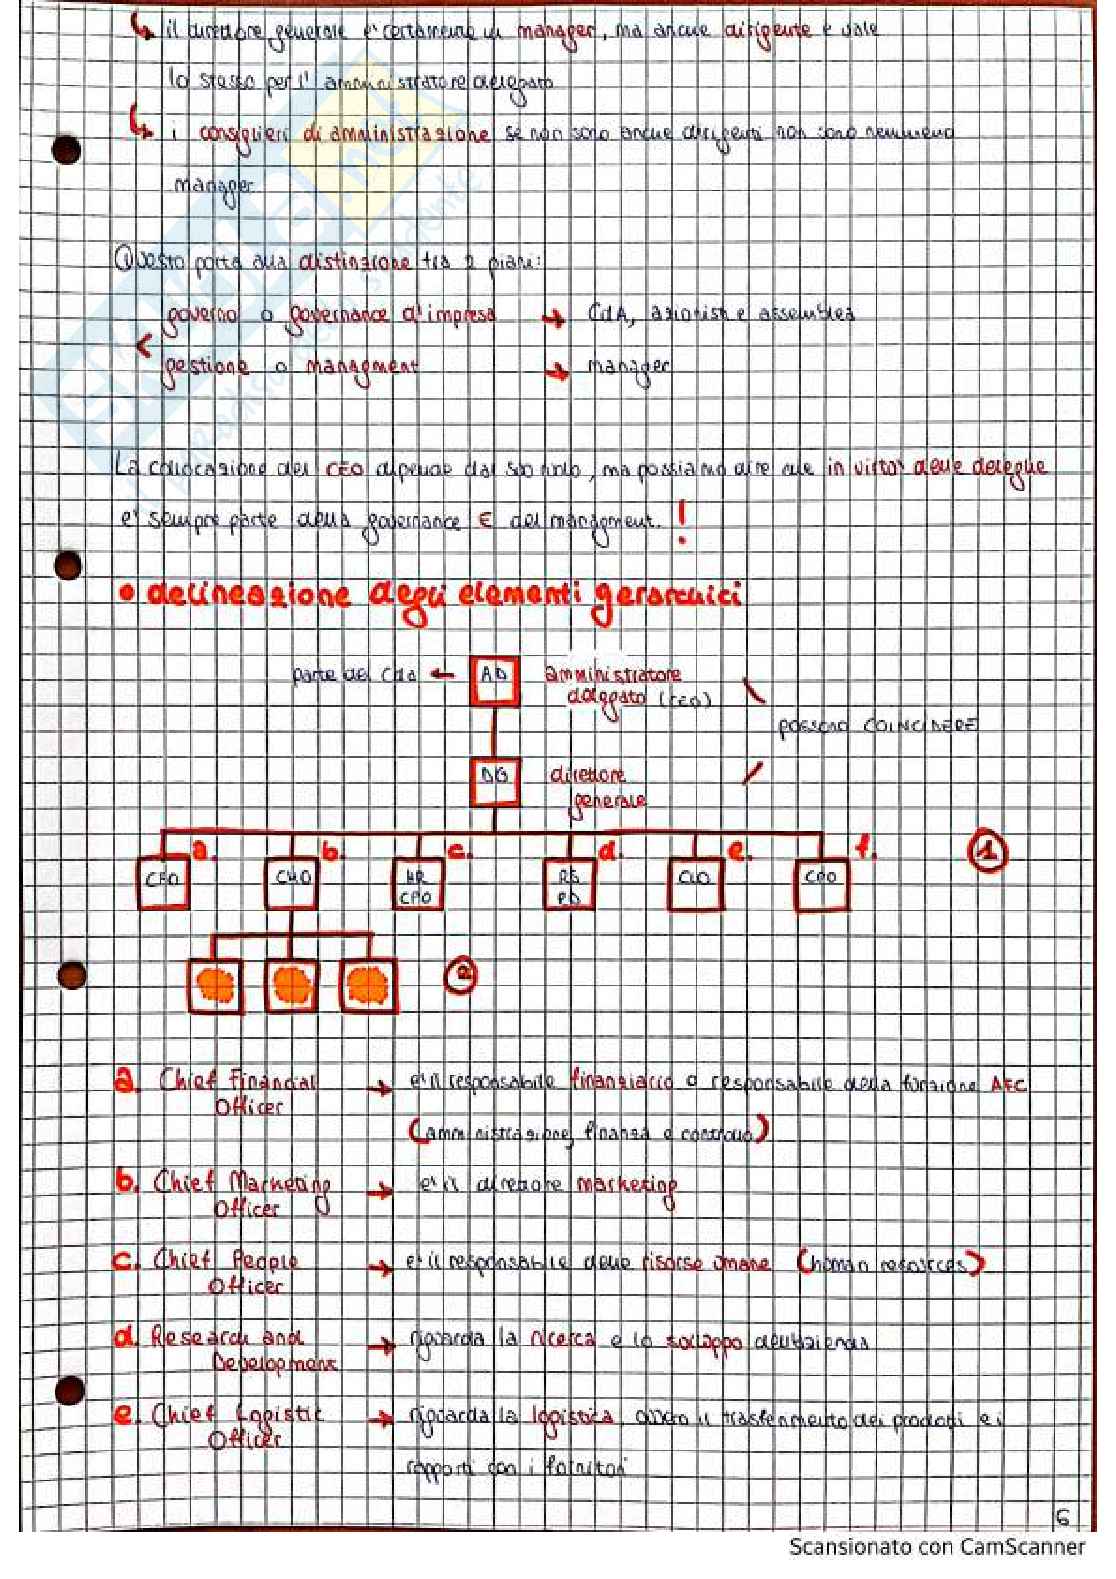 ↳ il direttore generale e' certamente un manager, ma anche dirigente e vale
lo stesso per l'amministratore delegato
↳ i consiglieri di amministrazione se non sono anche dirigenti non sono nemmeno
manager.
Questo porta alla distinzione tra 2 piani:
governo o governance d'impresa → CdA, azionisti e assemblea
<
gestione o managment → manager
La collocazione del CEO dipende dal suo ruolo, ma possiamo dire che in vista delle deleghe
e' sempre parte della governance E del managment. !
• delineazione degli elementi gerarchici
parte del Cda ← AD amministratore
delegato (CEO)
possono COINCIDERE
DG direttore
generale
a. b. c. d. e. f. 1
CFO CMO HR R& CLO COO
CPO D
2
a. Chief Financial → e' il responsabile finanziario o responsabile della funzione AFC
Officer
(amministrazione, finanza e controllo)
b. Chief Marketing → e' il direttore marketing
Officer
c. Chief People → e' il responsabile delle risorse umane (human resources)
Officer
d. Research and → riguarda la ricerca e lo sviluppo dell'azienda
Development
e. Chief Logistic → riguarda la logistica, ovvero il trasferimento dei prodotti e i
Officer
rapporti con i fornitori
6
Scansionato con CamScanner